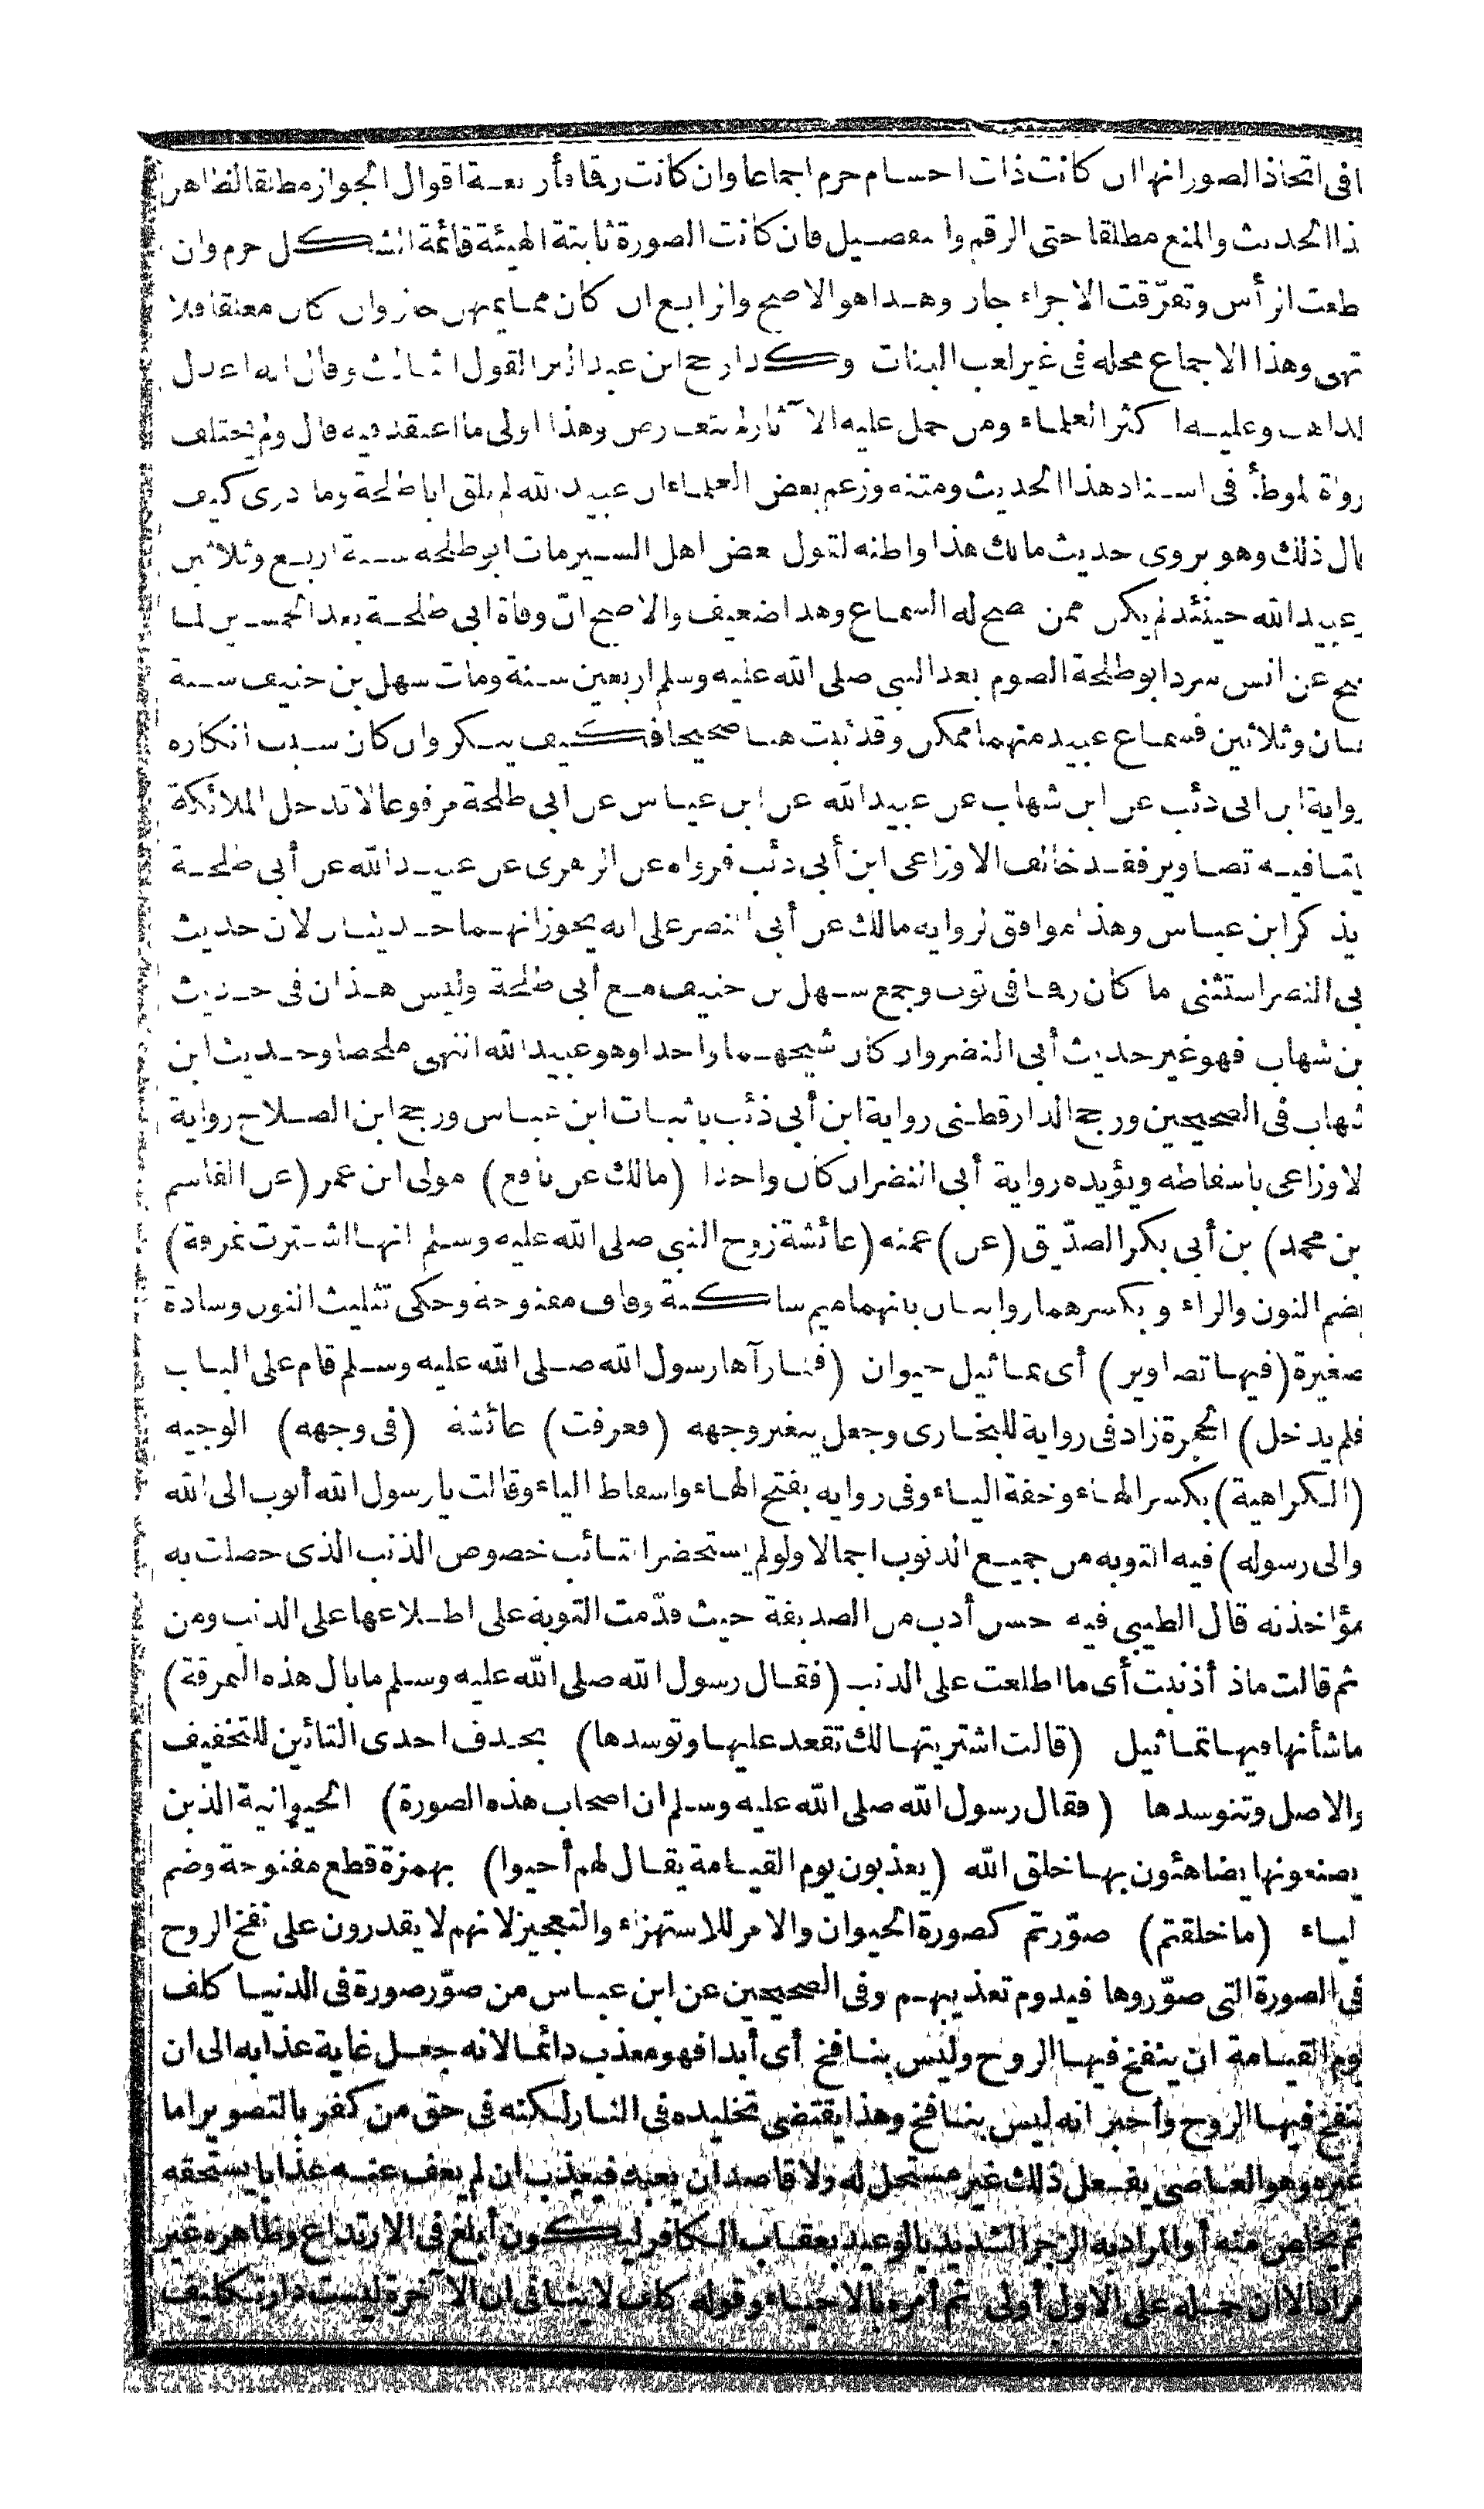 افى اتخاذ الصور انها ان كانت ذات اجسام حرم اجماعا وان كانت رقا فأربعة اقوال الجواز مطلقا لظاهر
ذا الحديث والمنع مطلقا حتى الرقم والتفصيل فان كانت الصورة ثابتة الهيئة قائمة الشكل حرم وان
طعت الرأس وتفرّقت الاجزاء جاز وهذا هو الاصح والرابع ان كان مما يمتهن جاز وان كان معلقا فلا
تهى وهذا الاجماع محله فى غير لعب البنات وكذا رجح ابن عبد البر القول الثالث وقال انه اعدل
لمذاهب وعليه اكثر العلماء ومن حمل عليه الآثار لم تتعارض وهذا اولى ما اعتقد فيه قال ولم يختلف
رواة الموطأ فى اسناد هذا الحديث ومتنه وزعم بعض العلماء ان عبيد الله لم يلق ابا طلحة وما ادرى كيف
ال ذلك وهو يروى حديث مالك هذا واظنه لقول بعض اهل السير مات ابو طلحة سنة اربع وثلاثين
وعبيد الله حينئذ لم يكن ممن صح له السماع وهذا ضعيف والاصح انّ وفاة ابى طلحة بعد الخمسين لما
صح عن انس سرد ابو طلحة الصوم بعد النبى صلى الله عليه وسلم اربعين سنة ومات سهل بن حنيف سنة
مان وثلاثين فسماع عبيد منهما ممكن وقد ثبت هنا صحيحا فكيف ينكر وان كان سبب انكاره
رواية ابن ابى ذئب عن ابن شهاب عن عبيد الله عن ابن عباس عن ابى طلحة مرفوعا لا تدخل الملائكة
يتا فيه تصاوير فقد خالف الاوزاعى ابن أبى ذئب فرواه عن الزهرى عن عبيد الله عن أبى طلحة
يذكر ابن عباس وهذا موافق لرواية مالك عن أبى النضر على انه يجوز انهما حديثان لان حديث
بى النضر استثنى ما كان رقا فى ثوب وجمع سهل بن حنيف مع أبى طلحة وليس هذان فى حديث
بن شهاب فهو غير حديث أبى النضر وان كان شيخهما واحدا وهو عبيد الله انتهى ملخصا وحديث ابن
شهاب فى الصحيحين ورجح الدارقطنى رواية ابن أبى ذئب باثبات ابن عباس ورجح ابن الصلاح رواية
لاوزاعى باسقاطه ويؤيده رواية أبى النضر ان كان واحدا (مالك عن نافع) مولى ابن عمر (عن القاسم
بن محمد) بن أبى بكر الصدّيق (عن) عمته (عائشة زوج النبى صلى الله عليه وسلم انها اشترت نمرقة)
بضم النون والراء وبكسرهما روايتان بينهما ميم ساكنة وقاف مفتوحة وحكى تثليث النون وسادة
صغيرة (فيها تصاوير) أى تماثيل حيوان (فلما رآها رسول الله صلى الله عليه وسلم قام على الباب
فلم يدخل) الحجرة زاد فى رواية للبخارى وجعل يتغير وجهه (فعرفت) عائشة (فى وجهه) الوجيه
(الكراهية) بكسر الهاء وخفة الياء وفى رواية بفتح الهاء واسقاط الياء وقالت يا رسول الله أتوب الى الله
والى رسوله) فيه التوبة من جميع الذنوب اجمالا ولو لم يستحضر التائب خصوص الذنب الذى حصلت به
مؤاخذته قال الطيبى فيه حسن أدب من الصديقة حيث قدّمت التوبة على اطلاعها على الذنب ومن
ثم قالت ماذ أذنبت أى ما اطلعت على الذنب (فقال رسول الله صلى الله عليه وسلم ما بال هذه النمرقة)
ما شأنها فيها تماثيل (قالت اشتريتها لك تقعد عليها وتوسدها) بحذف احدى التائين للتخفيف
والاصل وتتوسدها (فقال رسول الله صلى الله عليه وسلم ان اصحاب هذه الصورة) الحيوانية الذين
يصنعونها يضاهئون بها خلق الله (يعذبون يوم القيامة يقال لهم أحيوا) بهمزة قطع مفتوحة وضم
لياء (ما خلقتم) صوّرتم كصورة الحيوان والامر للاستهزاء والتعجيز لانهم لا يقدرون على نفخ الروح
فى الصورة التى صوّروها فيدوم تعذيبهم وفى الصحيحين عن ابن عباس من صوّر صورة فى الدنيا كلف
يوم القيامة ان ينفخ فيها الروح وليس بنافخ أى أبدا فهو معذب دائما لانه جعل غاية عذابه الى ان
ينفخ فيها الروح وأخبر انه ليس بنافخ وهذا يقتضى تخليده فى النار لكنه فى حق من كفر بالتصوير اما
غيره وهو العاصى يفعل ذلك غير مستحل له ولا قاصد ان يعبد فيعذب ان لم يعف عنه عذابا يستحقه
ثم يخلص منه أو المراد به الزجر الشديد بالوعيد بعقاب الكافر ليكون أبلغ فى الارتداع وظاهره غير
مراد الا ان حمله على الاول أولى ثم أمره بالاحياء وقوله كلف لا ينافى ان الآخرة ليست دار تكليف